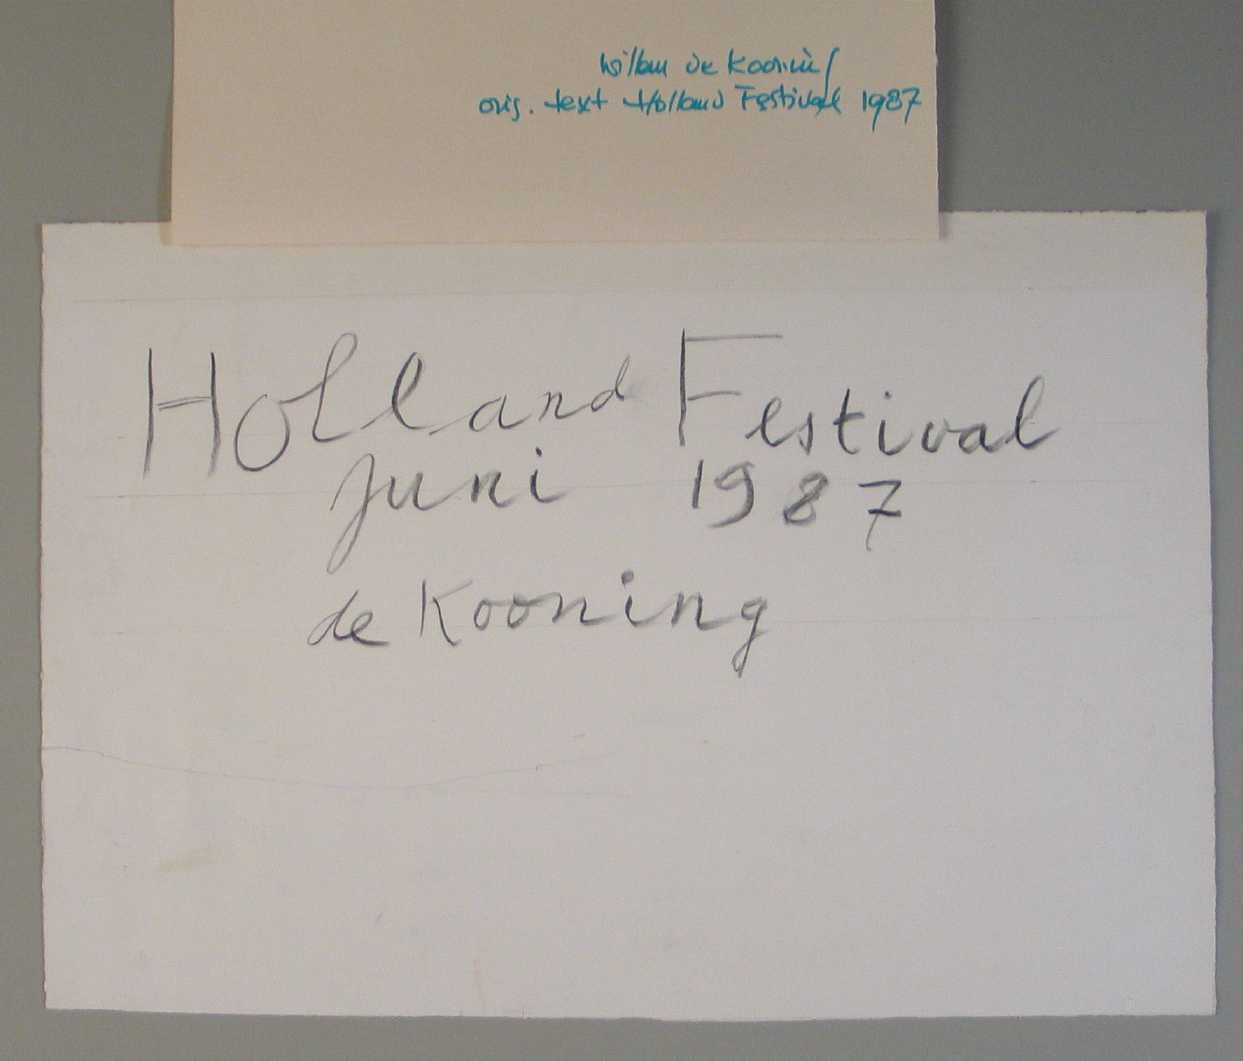 Willem de Kooning
orig. text Holland Festival 1987
Holland Festival
juni 1987
de Kooning